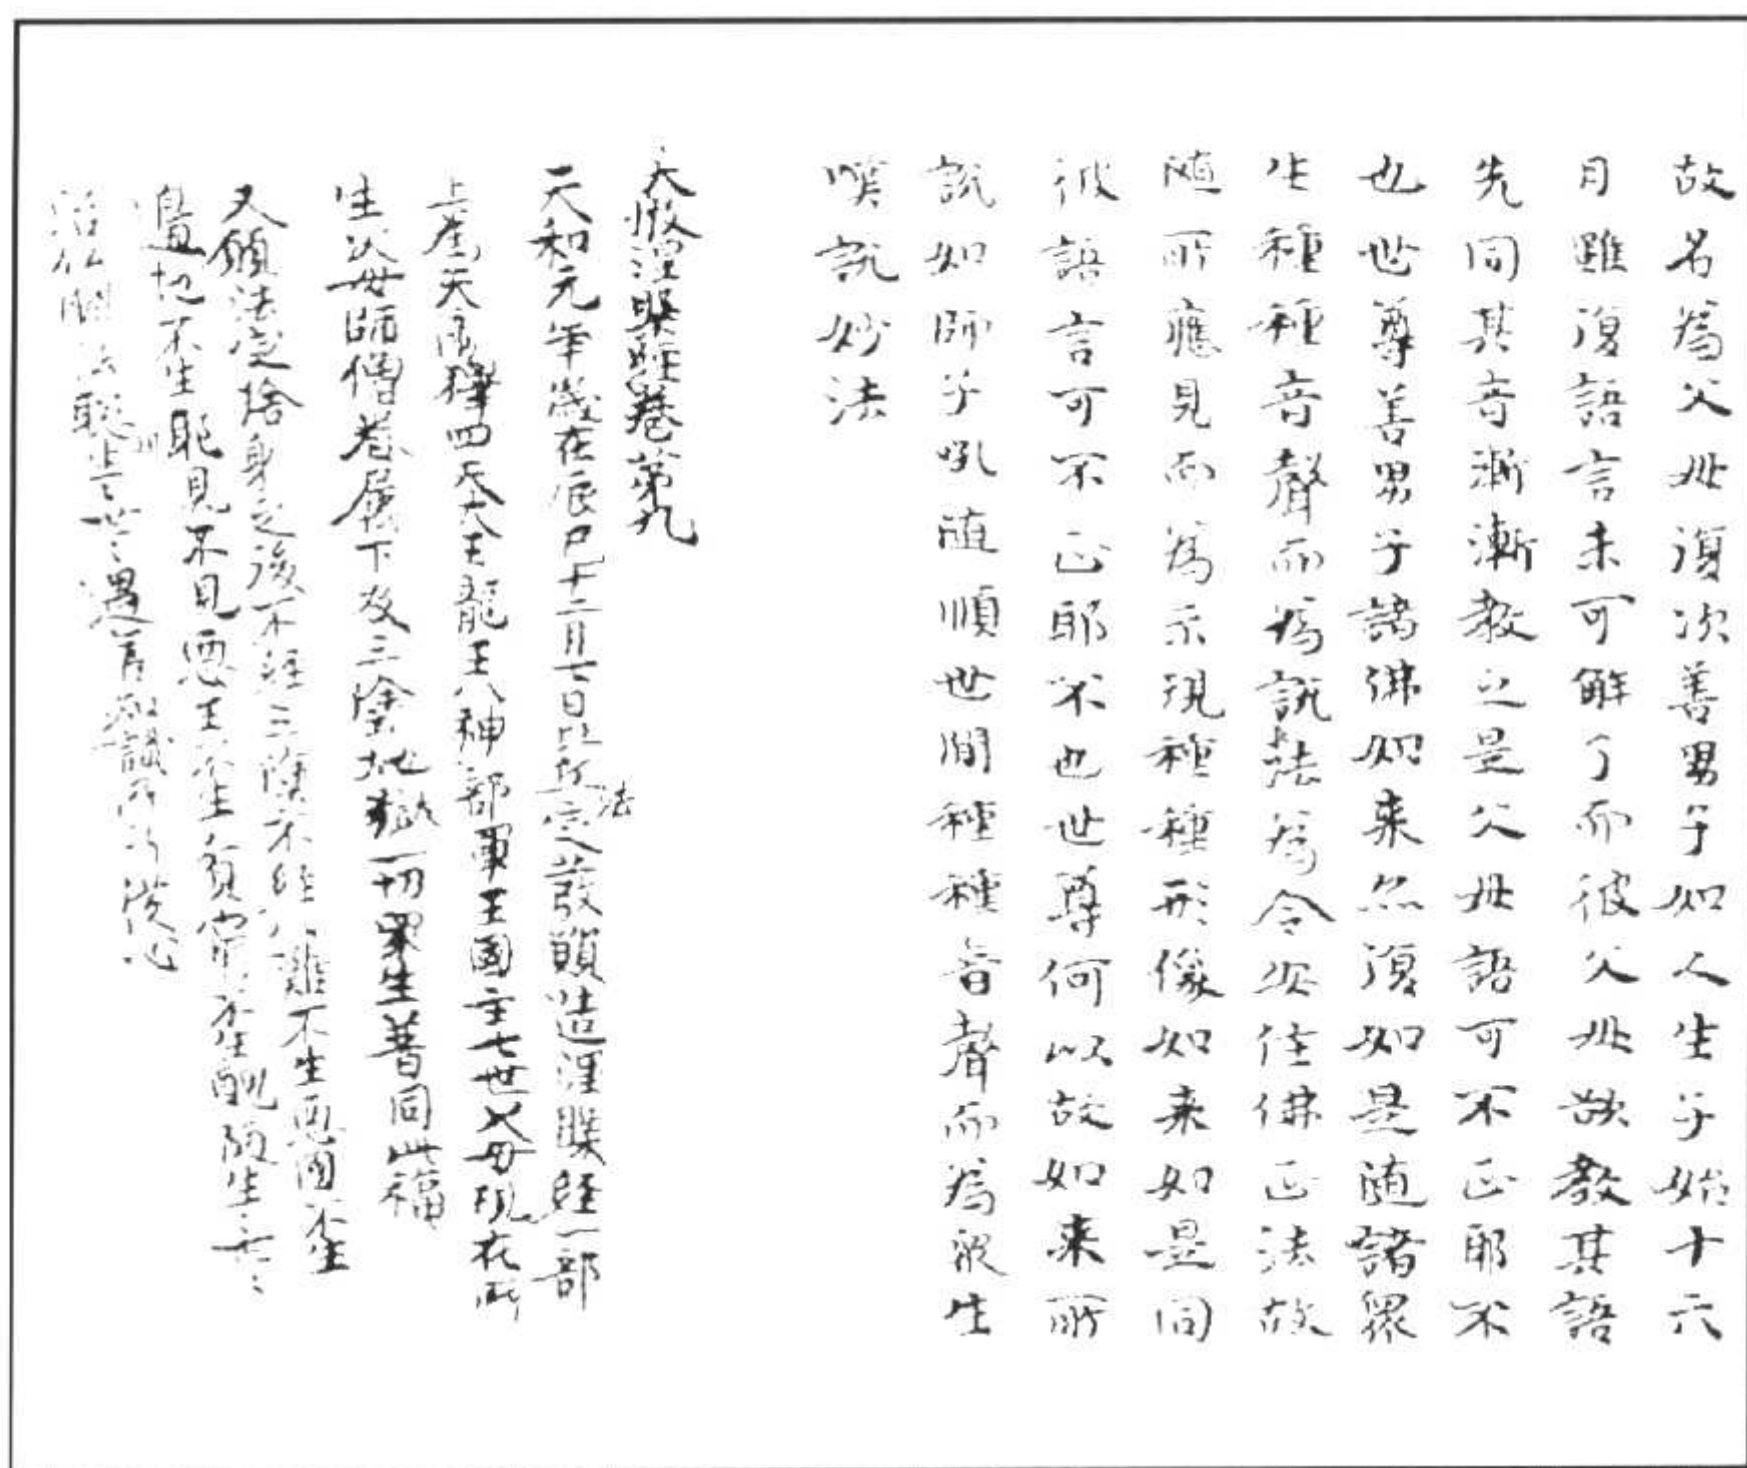 故名為父母復次善男子如人生子始十六
月雖復語言未可解了而彼父母欲教其語
先同其音漸漸教之是父母語可不正耶不
也世尊善男子諸佛如来亦復如是随諸眾
生種種音聲而為說法為令安住佛正法故
随所應見而為示現種種形像如来如是同
彼語言可不正耶不也世尊何以故如来所
說如師子吼随順世間種種音聲而為眾生
嘆說妙法
大般涅槃經卷第九
天和元年歲在辰巳十二月七日比丘法定發願造涅槃經一部
上為天帝釋四天大王龍王八神部軍王國主七世父母現在所
生父母師僧眷屬下及三塗地獄一切眾生普同此福
又願法定捨身之後不經三塗不經八難不生惡國不生
邊地不生耶見不見惡王不生貧窮不生醜陋生生世世
治化聞法聰世世遇善知識所行從心